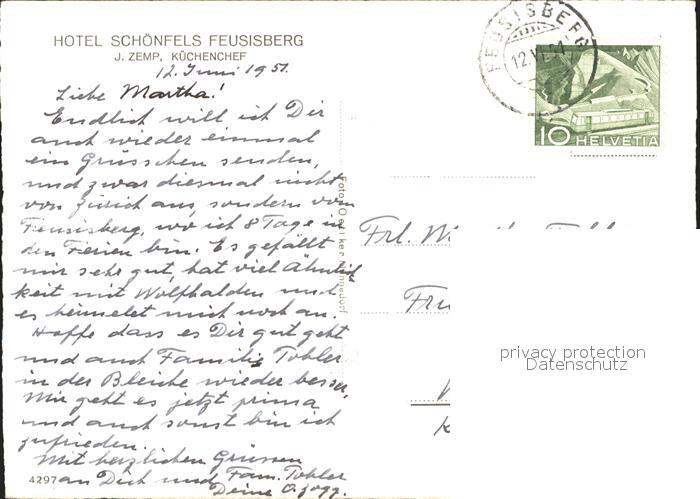 HOTEL SCHÖNFELS FEUSISBERG
J. ZEMP, KÜCHENCHEF
12. Juni 1951.
Liebe Martha!
Endlich will ich Dir
auch wieder einmal
ein Grüsschen senden,
und zwar diesmal nicht
von Zürich aus, sondern vom
Feusisberg, wo ich 8 Tage in
den Ferien bin. Es gefällt
mir sehr gut, hat viel Ähnlich
keit mit Wolfhalden und
es heimelet mich noch an.
Hoffe dass es Dir gut geht
und auch Familie Tobler
in der Bleiche wieder besser,
Mir geht es jetzt prima
und auch sonst bin ich
zufrieden.
Mit herzlichen Grüssen
an Dich und Fam. Tobler
Deine
4297
Foto Oetiker
FEUSISBERG
12.VI.51
10 HELVETIA
Frl.
privacy protection
Datenschutz